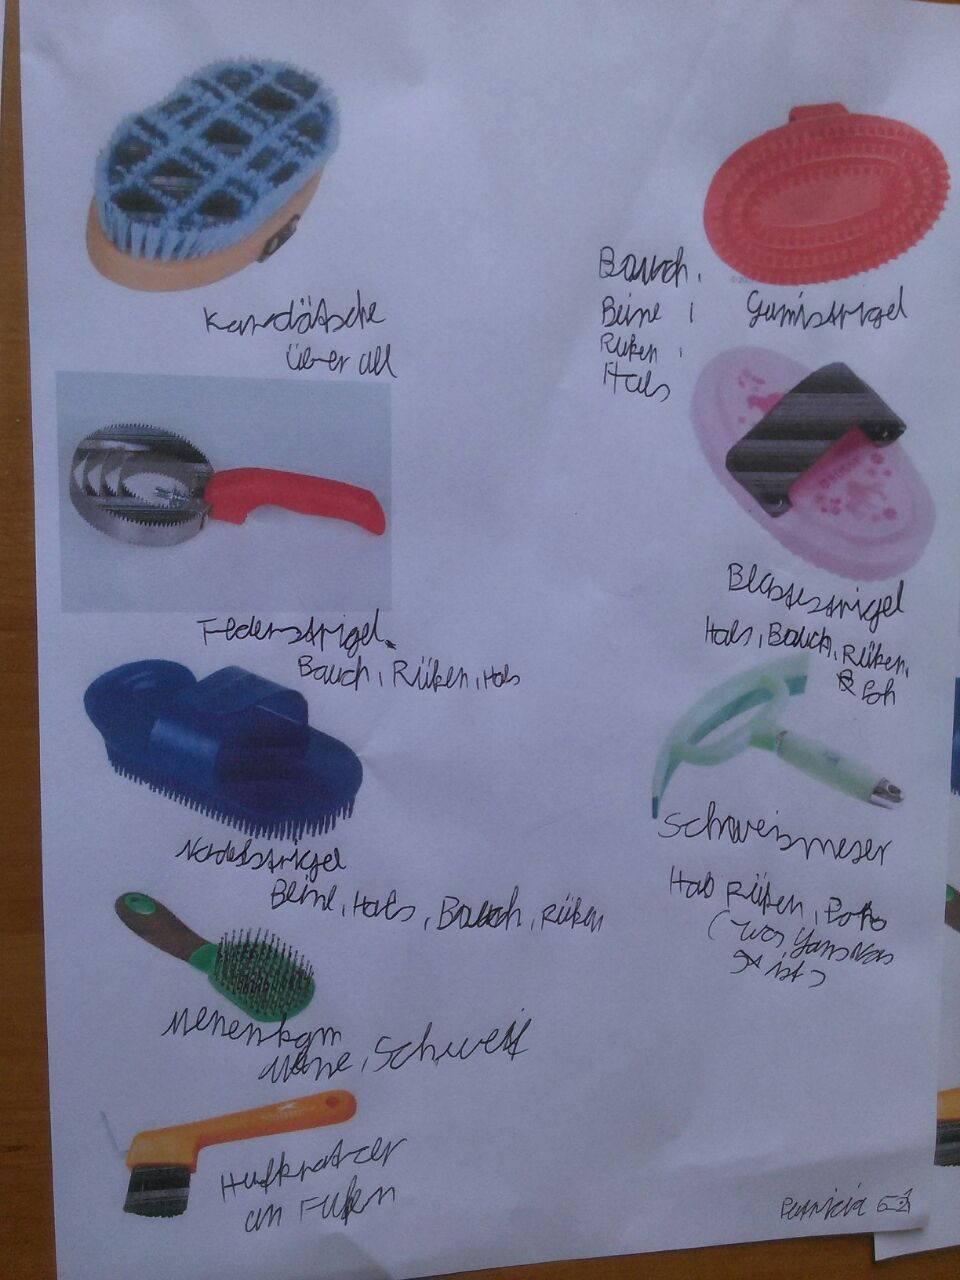 Kardätsche
über all
Bauch,
Beine,
Rüken,
Hals
Gumistrigel
Federstrigel
Bauch, Rüken, Hals
Blästestrigel
Hals, Bauch, Rüken,
Poh
Nadelstrigel
Beine, Hals, Bauch, Rüken
Schweismeser
Hals Rüken, Poho
ist)
Menenkam
Mäne, Schweif
Hufkratzer
an Fußen
Patricia